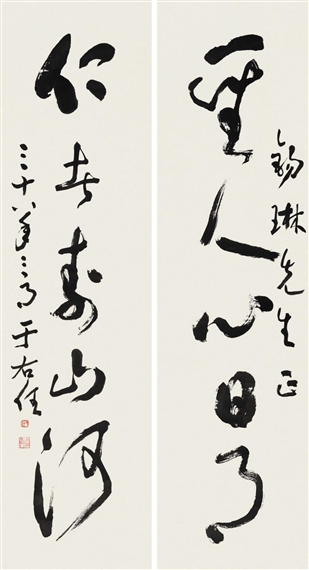 錫琳先生正
聖人心日月
仁者壽山河
三十八年三月于右任